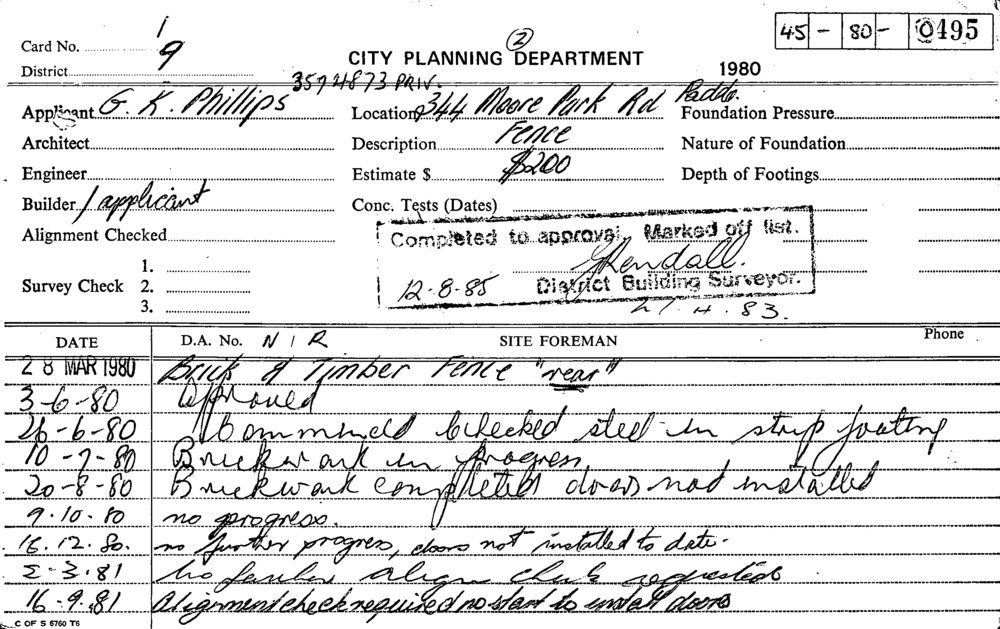 45 - 80 - 0495
1
Card No.
9
District
CITY PLANNING DEPARTMENT
2
1980
3574873 PRIV.
Applicant G. K. Phillips
Location 344 Moore Park Rd Padd.
Foundation Pressure
Architect
Description Fence
Nature of Foundation
Engineer
Estimate $ $200
Depth of Footings
Builder / applicant
Conc. Tests (Dates)
Alignment Checked
Completed to approval. Marked off list.
Survey Check
1.
2.
3.
12-8-85 District Building Surveyor.
21.4.83.
DATE D.A. No. N I R SITE FOREMAN Phone
28 MAR 1980 Brick & Timber Fence "rear"
3-6-80 Approved
26-6-80 Commenced Checked steel in strip footing
10-7-80 Brickwork in progress
20-8-80 Brickwork completed doors not installed
9.10.80 no progress.
16.12.80. no further progress, doors not installed to date.
2-3.81 No further align check requested
16-9.81 Alignment check required no start to install doors
C OF S 6760 T6